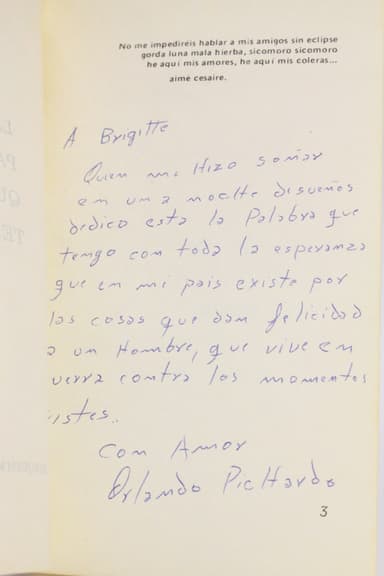 No me impediréis hablar a mis amigos sin eclipse
gorda luna mala hierba, sicomoro sicomoro
he aquí mis amores, he aquí mis coleras...
aimé cesaire.
A Brigitte
Quien me Hizo soñar
en una noche de sueños
dedico esta la Palabra que
tengo con toda la esperanza
que en mi pais existe por
las cosas que dan felicidad
a un Hombre, que vive en
uerra contra los momentos
istes.
Con Amor
Orlando Pichardo
3